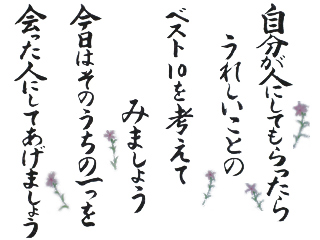 自分が人にしてもらったら
うれしいことの
ベスト10を考えて
みましょう
今日はそのうちの一つを
会った人にしてあげましょう